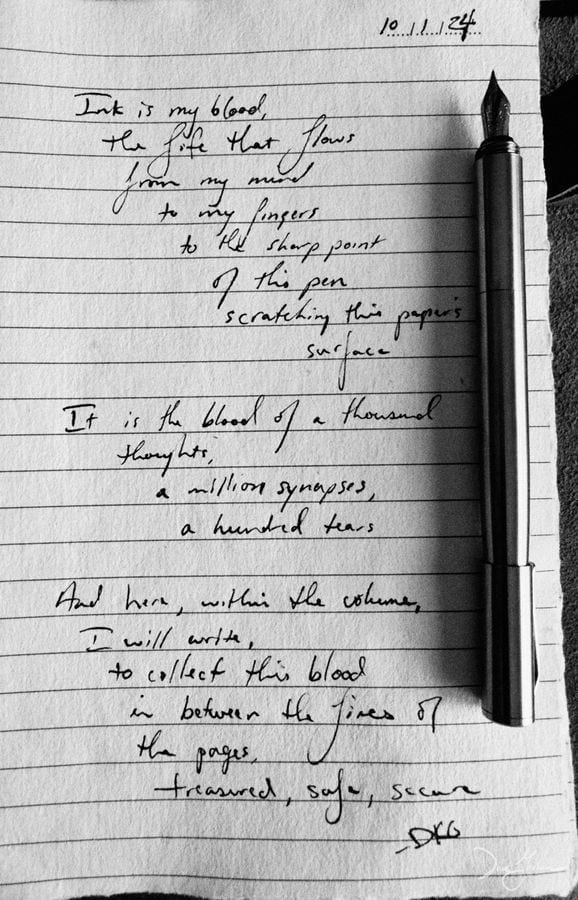 10/1/24
Ink is my blood,
the life that flows
from my mind
to my fingers
to the sharp point
of this pen
scratching this paper's
surface
It is the blood of a thousand
thoughts,
a million synapses,
a hundred tears
And here, within the volume,
I will write,
to collect this blood
in between the lines of
the pages,
treasured, safe, secure